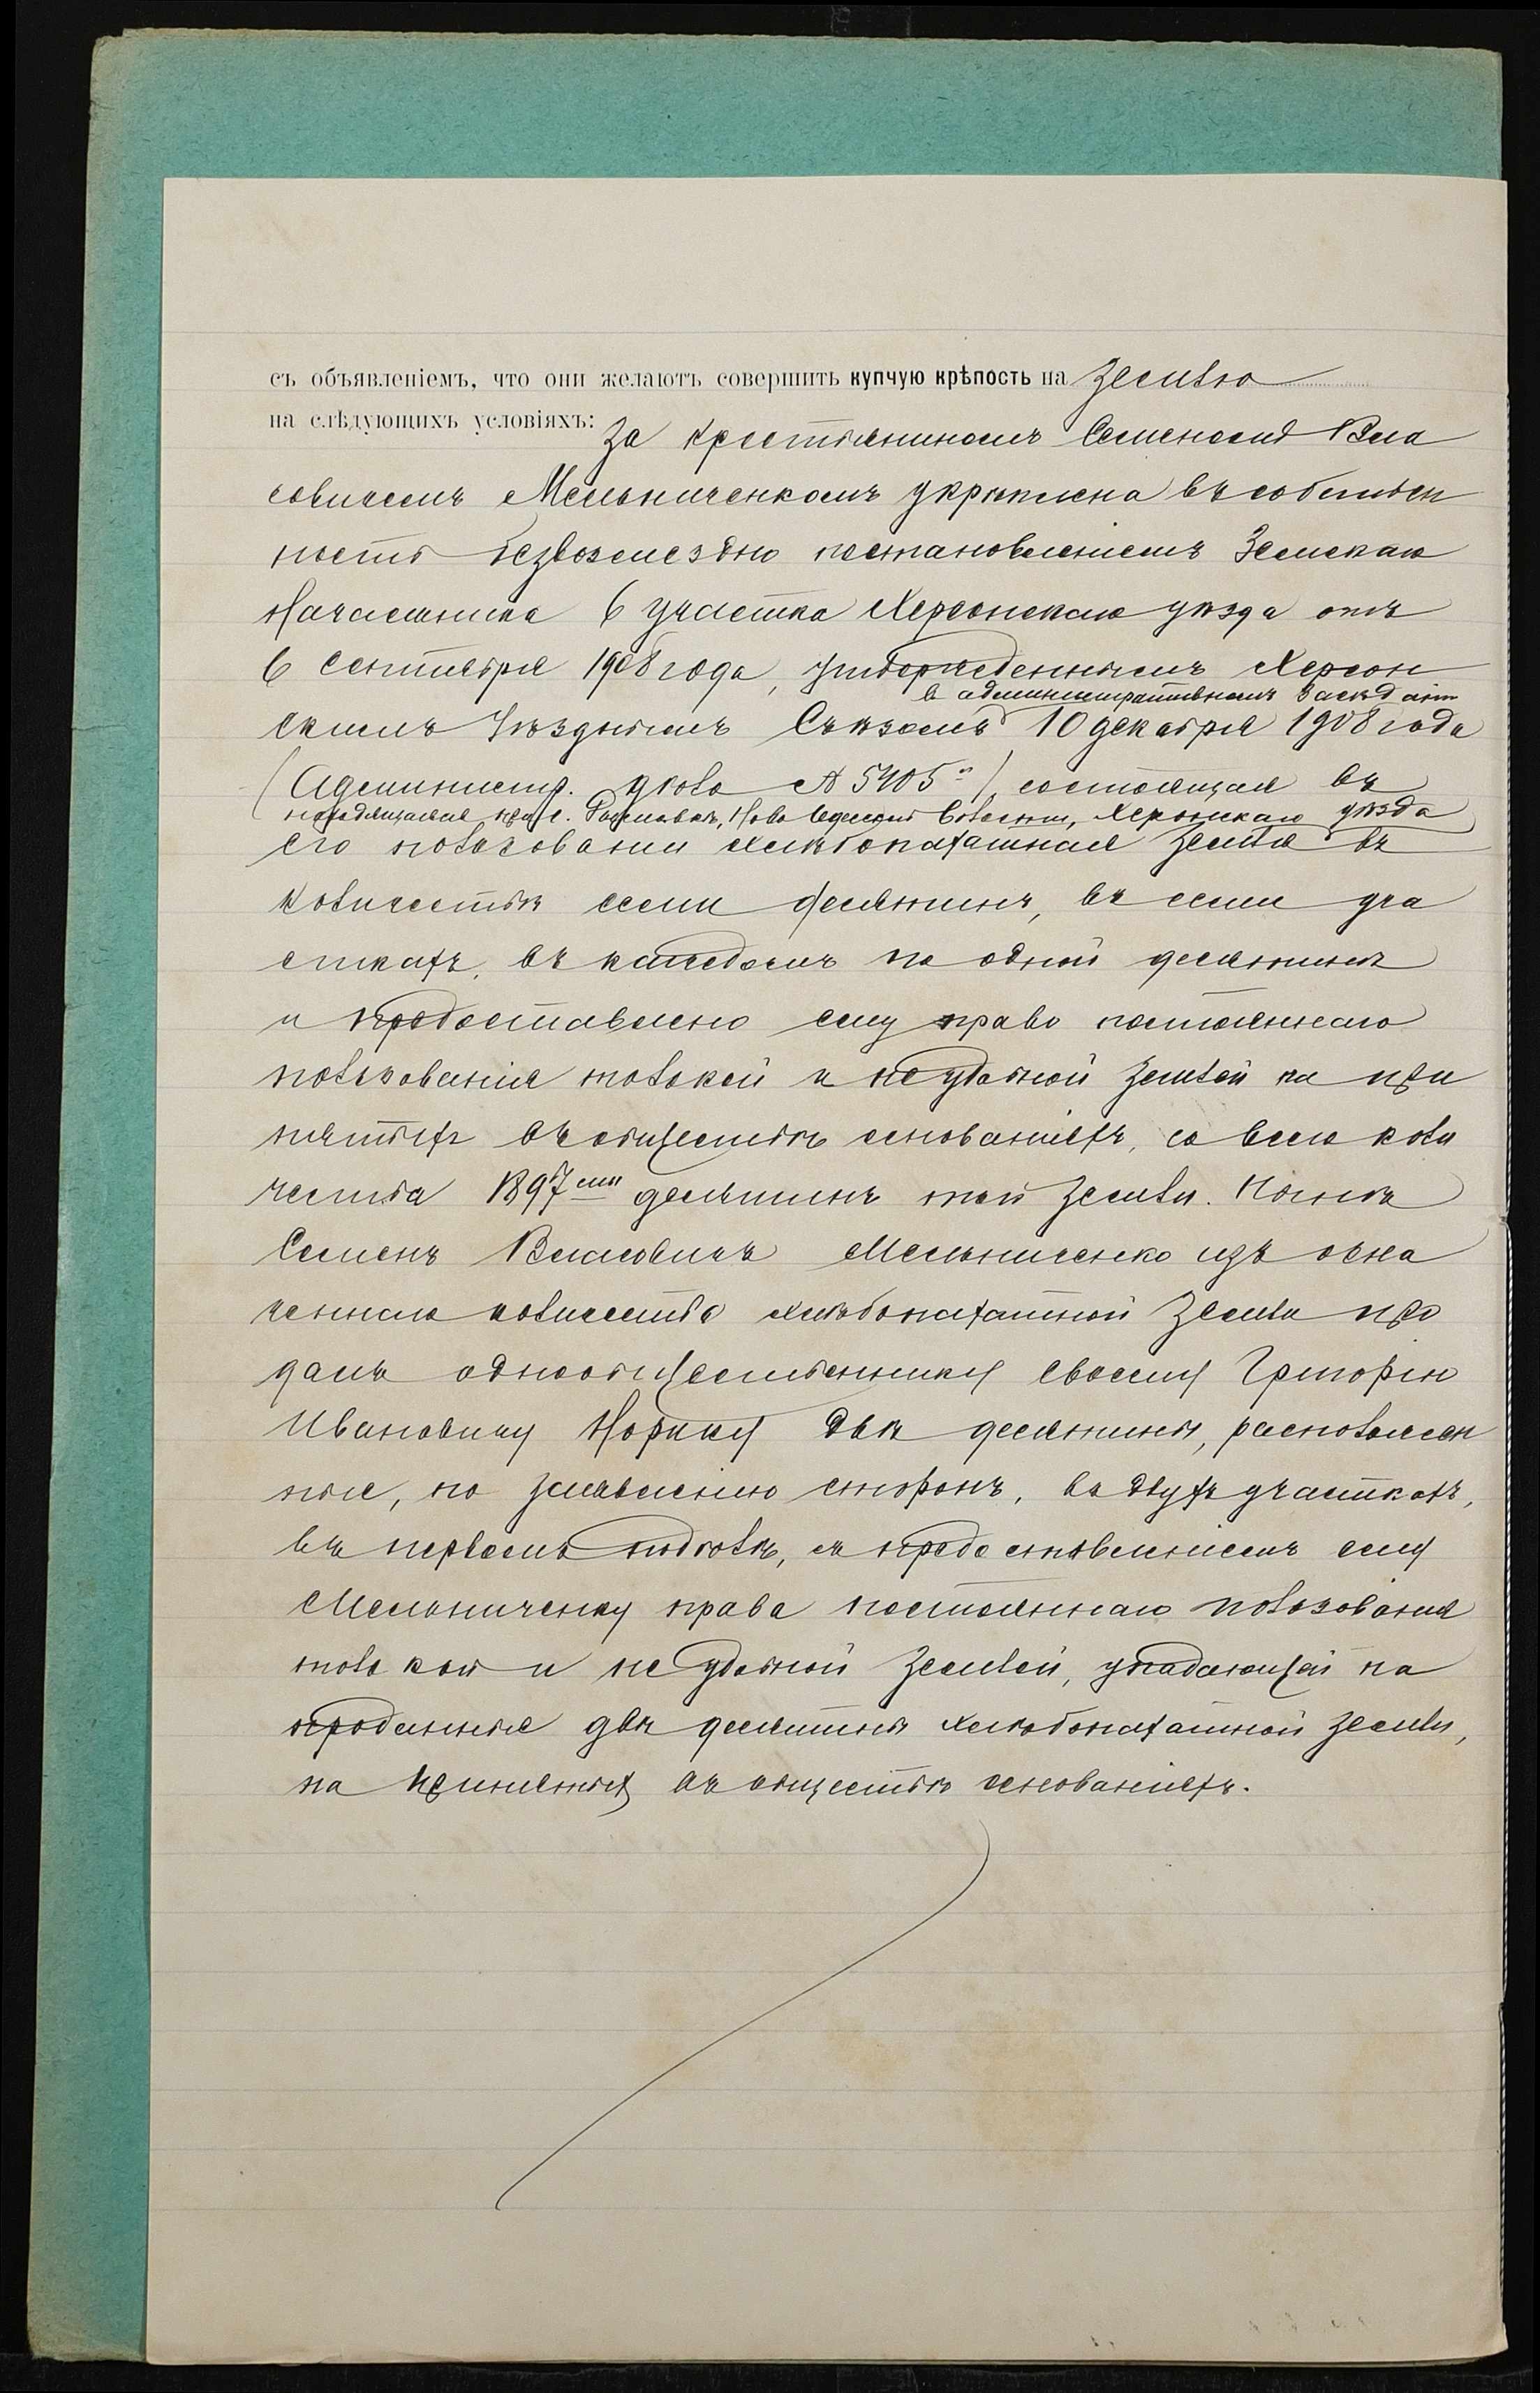 съ объявленіемъ, что они желаютъ совершить купчую крѣпость на землю
на слѣдующихъ условіяхъ: За крестьяниномъ Семеномъ Вла
совичемъ Мельниченкомъ укрѣплена въ собствен
ность безвозмездно постановленіемъ Земскаго
Начальника 6 участка Херсонскаго уѣзда отъ
6 Сентября 1908 года, утвержденнымъ Херсон
в административномъ засѣданіи
скимъ Уѣзднымъ Съѣздомъ 10 декабря 1908 года
(Администр. дѣло № 5405), состоящая въ
находящаяся при с. Новo Одесской волости, Херсонскаго уѣзда
его пользованіи хлѣбопахатная земля въ
количествѣ семи десятинъ, въ семи уча
сткахъ, въ каждомъ по одной десятинѣ
и предоставлено ему право постояннаго
пользованія толокой и неудобной землей на при
нятыхъ въ обществѣ основаніяхъ, со всего коли
чества 1897ми десятинъ той земли. Нынѣ
Семенъ Власовичъ Мельниченко изъ озна
ченнаго количества хлѣбопахатной земли про
далъ однообщественнику своему Григорію
Ивановичу Норкѣ двѣ десятины, расположен
ныя, по заявленію сторонъ, въ двухъ участкахъ,
въ первомъ съ предоставленіемъ ему
Мельниченку права постояннаго пользованія
толокой и неудобной землей, упадающей на
проданныя двѣ десятины хлѣбопахатной земли,
на принятыхъ въ обществѣ основаніяхъ.